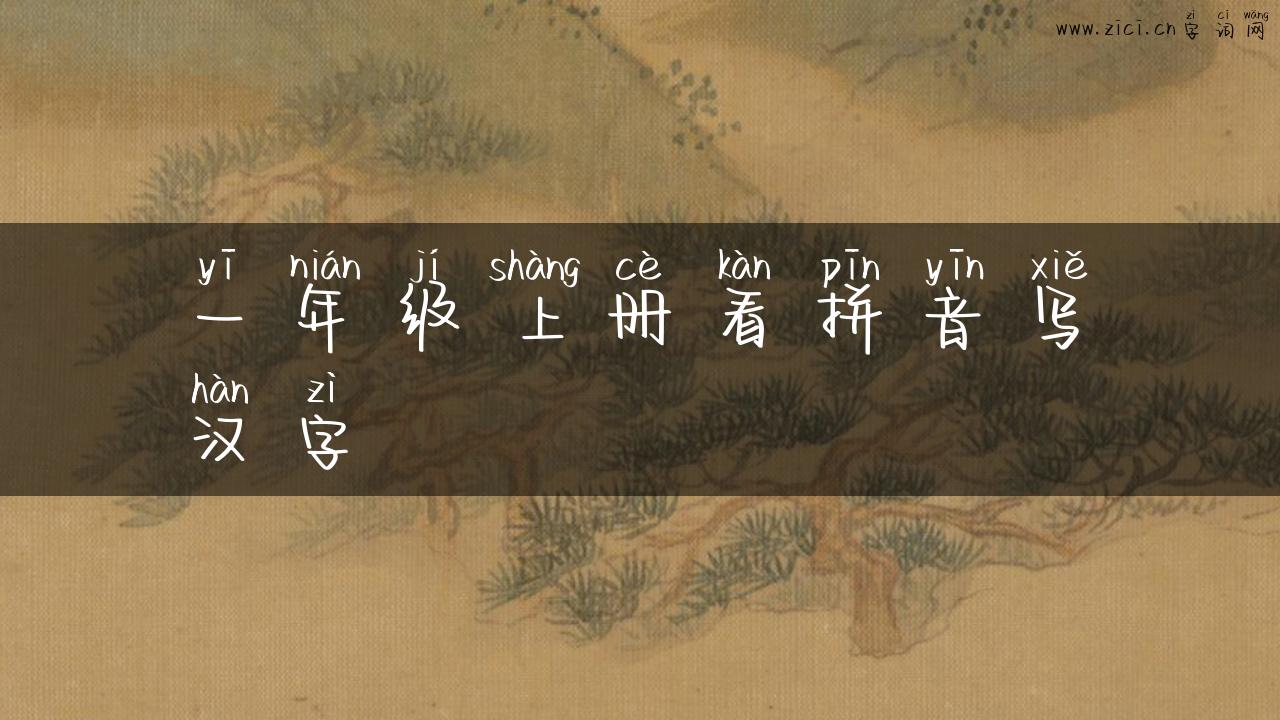 zì cí wǎng
www.zīcī.cn 字 词 网
yī nián jí shàng cè kàn pīn yīn xiě
一 年 级 上 册 看 拼 音 写
hàn zì
汉 字